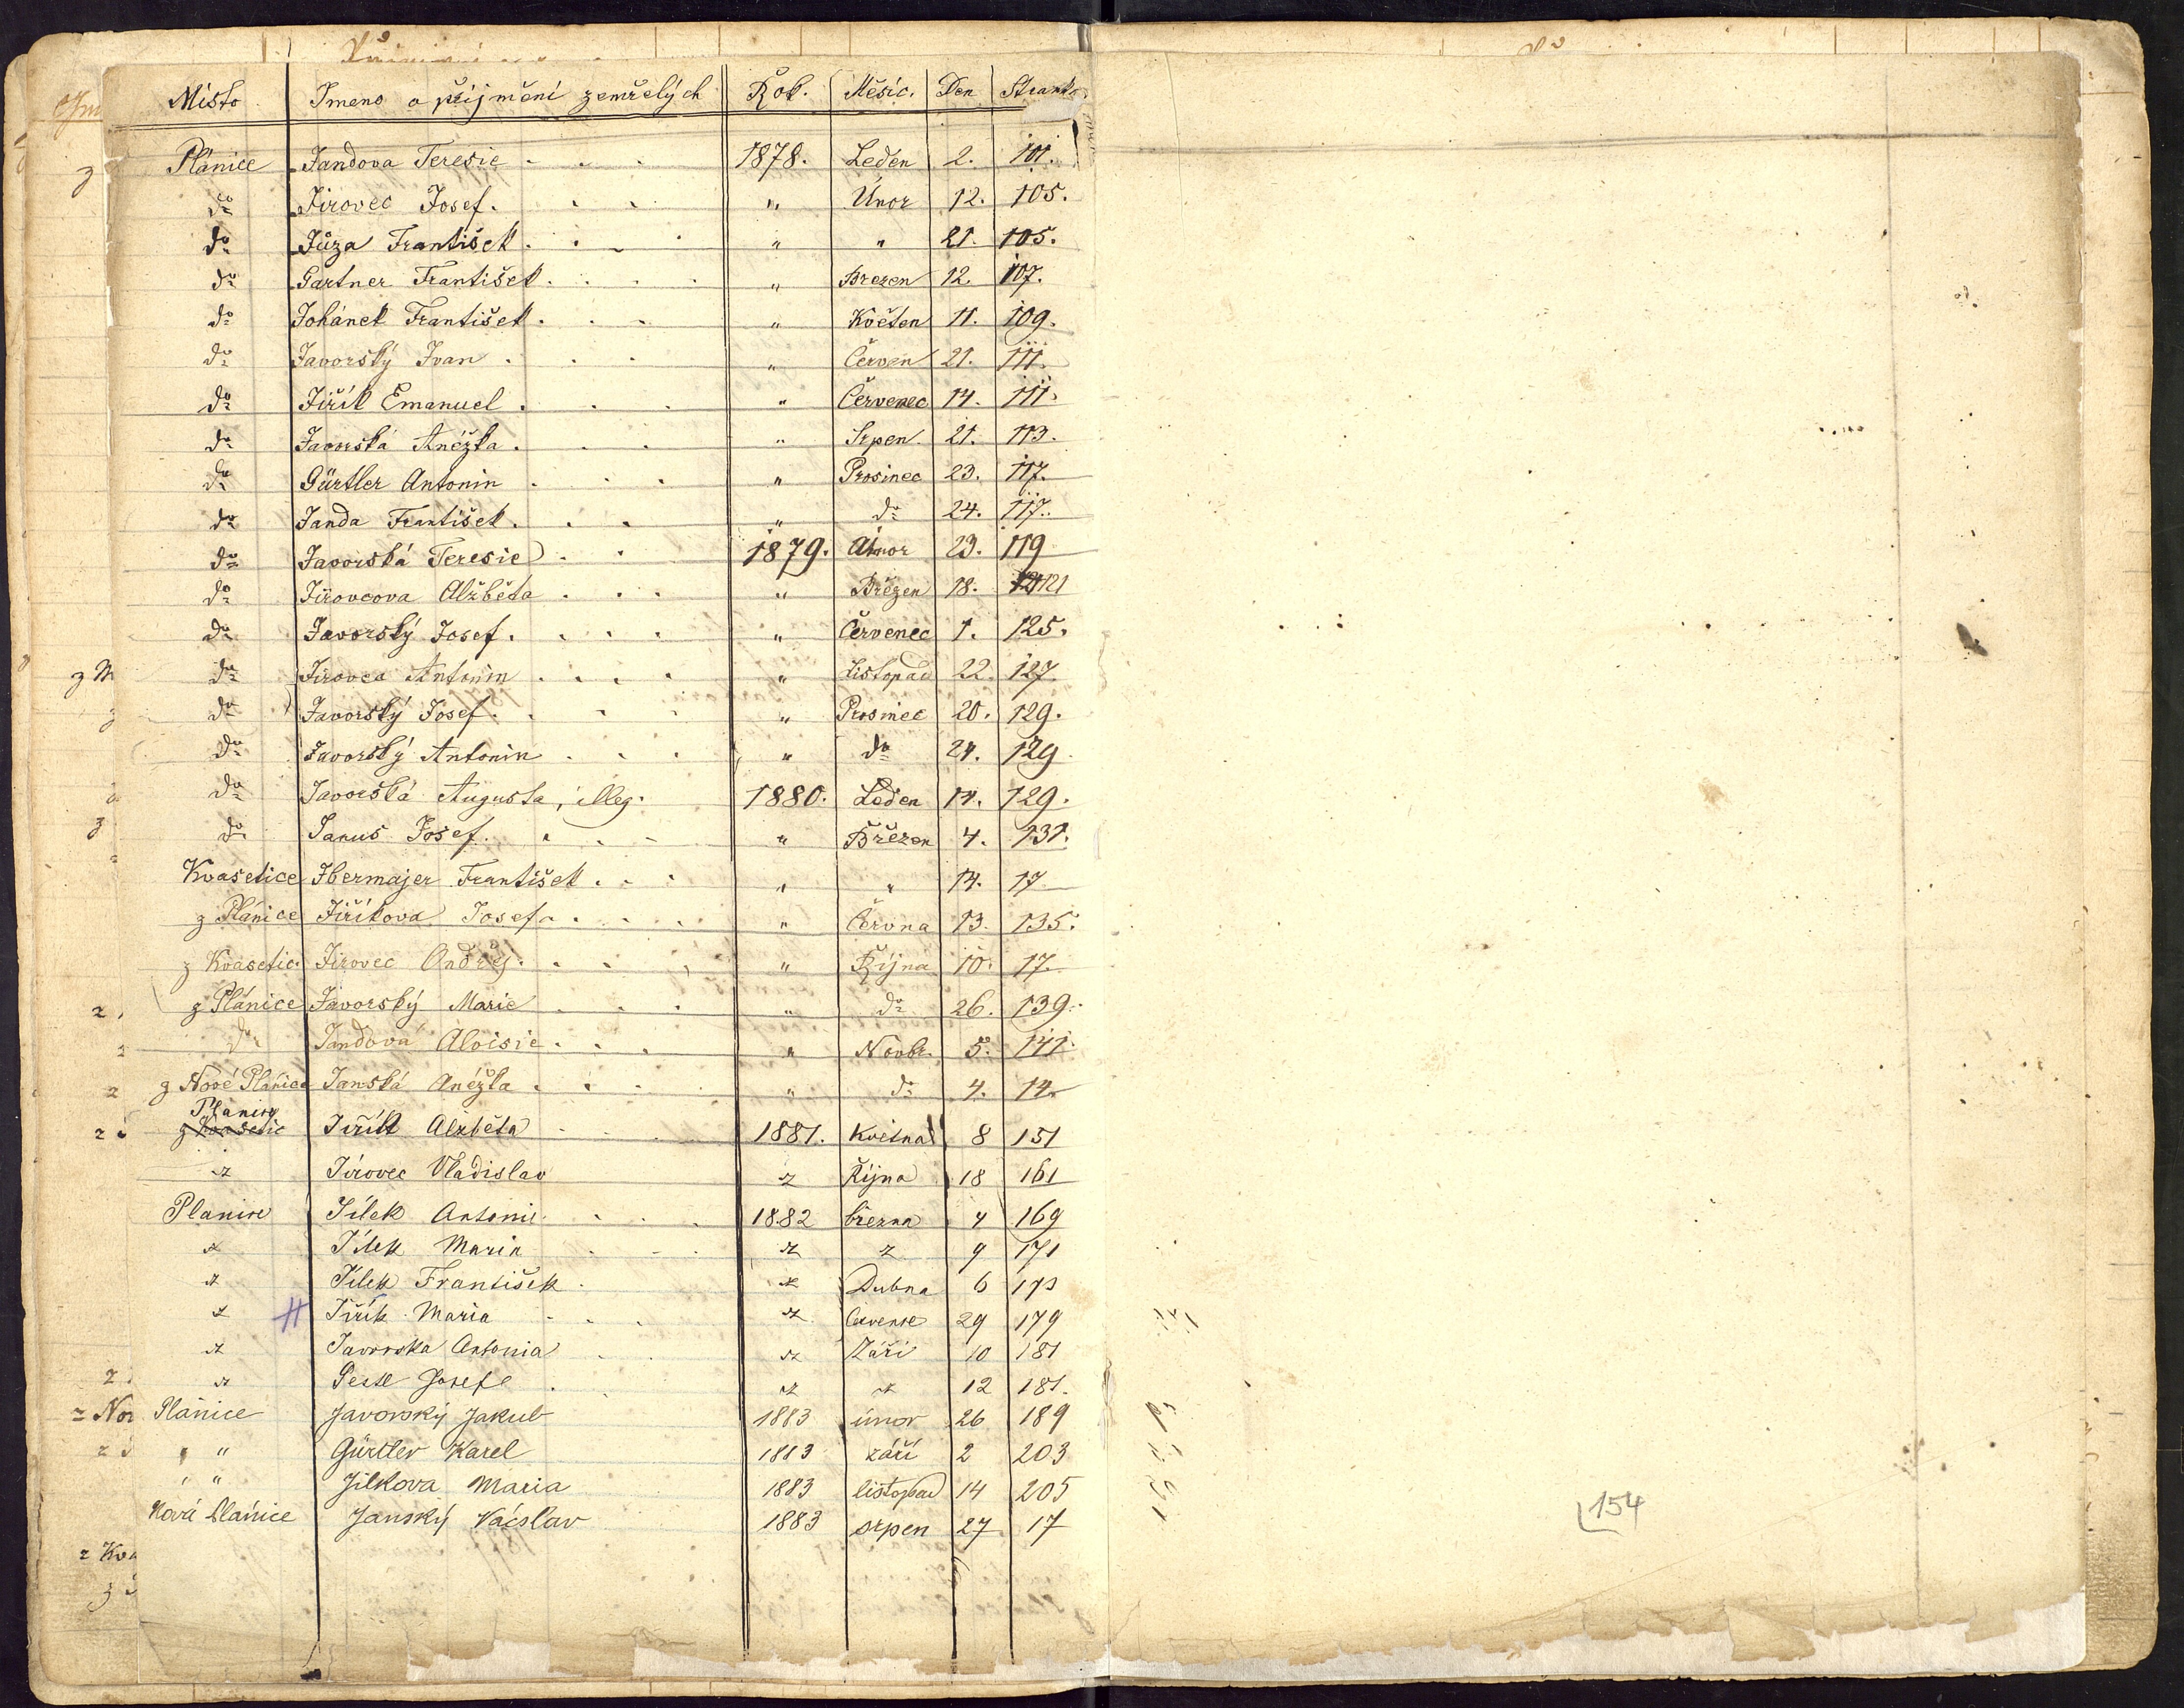 Místo Jmeno a příjmění zemřelých Rok. Měsíc. Den Strank
Plánice Jandova Teresie 1878. Leden 2. 101.
do Jirovec Josef. " Únor 12. 105.
do Jůza František. " " 21. 105.
do Gartner František. " Brezen 12. 107.
do Johánek František. " Květen 11. 109.
do Javorský Ivan. " Červen 21. 111.
do Jiřík Emanuel. " Červenec 14. 111.
do Javorská Anéžka. " Srpen 21. 113.
do Gürtler Antonin " Prosinec 23. 117.
do Janda František. " do 24. 117.
do Javorská Teresie 1879. Únor 23. 119
do Jírovcova Alžběta " Březen 18. 121
do Javorský Josef. " Červenec 1. 125.
do Jírovec Antonin " listopad 22. 127.
do Javorský Josef. " Prosinec 20. 129.
do Javorský Antonin " do 24. 129
do Javorská Augusta, illeg. 1880. Leden 14. 129.
do Janus Josef. " Březen 4. 131.
Kvasetice Ibermajer František. " " 14. 17
z Plánice Jiříkova Josefa " Června 13. 135.
z Kvasetic Jirovec Ondřej. " Října 10. 17.
z Plánice Javorský Marie " do 26. 139.
do Jandová Aloisie. " Novbr. 5. 141.
z Nové Plánice Janská Anéžka. " do 4. 14.
Planice
z Kvasetic Jiřík Alžběta 1881. Května 8 151
" Jírovec Vladislav " Října 18 161
Planice Jílek Antonie 1882 března 4 169
" Jílek Maria " " 9 171
" Jílek František " Dubna 6 173
" Jiřík Maria " Července 29 179
" Javorska Antonia " Září 10 181
" Josefe " " 12 181.
Planice Javorský Jakub 1883 únor 26 189
" Gürtler Karel 1883 září 2 203
" Jílkova Maria 1883 listopad 14 205
Nová Plánice Janský Václav 1883 srpen 27 17
154